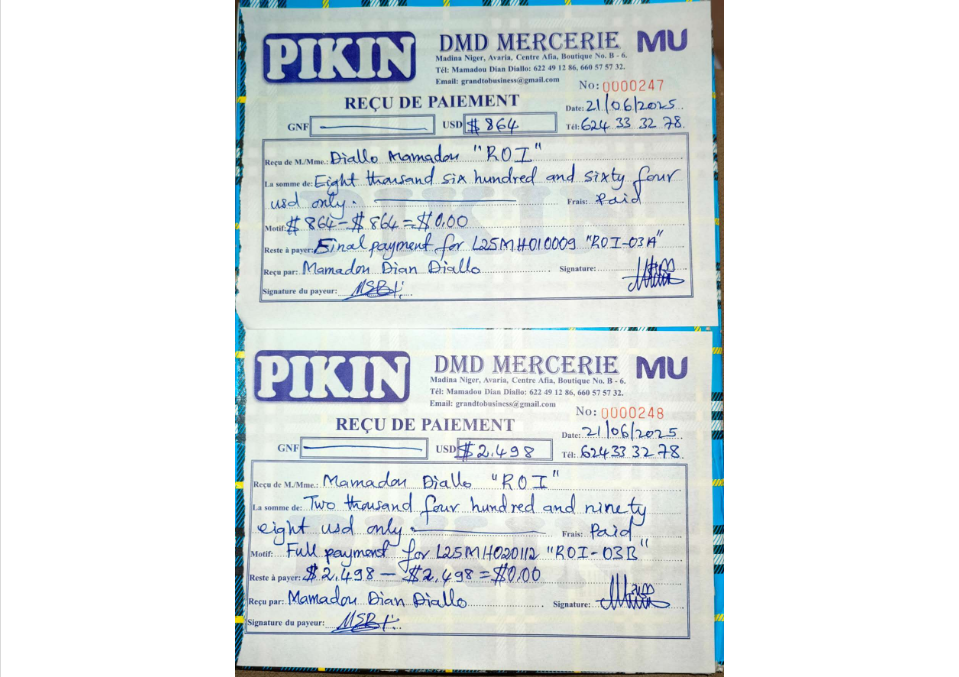 PIKIN DMD MERCERIE MU
Madina Niger, Avaria, Centre Afia, Boutique No. B - 6.
Tél: Mamadou Dian Diallo: 622 49 12 86, 660 57 57 32.
Email: grandtobusiness@gmail.com
No: 0000247
REÇU DE PAIEMENT
Date: 21/06/2025
GNF USD $ 864
Tél: 624 33 32 78
Reçu de M./Mme.: Diallo Mamadou "ROI"
La somme de: Eight thousand six hundred and sixty four
usd only. Frais: Paid
Motif: $ 864 - $ 864 = $0.00
Reste à payer: Final payment for L25MH010009 "ROI-03A"
Reçu par: Mamadou Dian Diallo Signature:
Signature du payeur:
PIKIN DMD MERCERIE MU
Madina Niger, Avaria, Centre Afia, Boutique No. B - 6.
Tél: Mamadou Dian Diallo: 622 49 12 86, 660 57 57 32.
Email: grandtobusiness@gmail.com
No: 0000248
REÇU DE PAIEMENT
Date: 21/06/2025
GNF USD $ 2.498
Tél: 624 33 32 78
Reçu de M./Mme.: Mamadou Diallo "ROI"
La somme de: Two thousand four hundred and ninety
eight usd only. Frais: Paid
Motif: Full payment for L25MH020112 "ROI-03B"
Reste à payer: $2.498 - $2.498 = $0.00
Reçu par: Mamadou Dian Diallo Signature:
Signature du payeur: